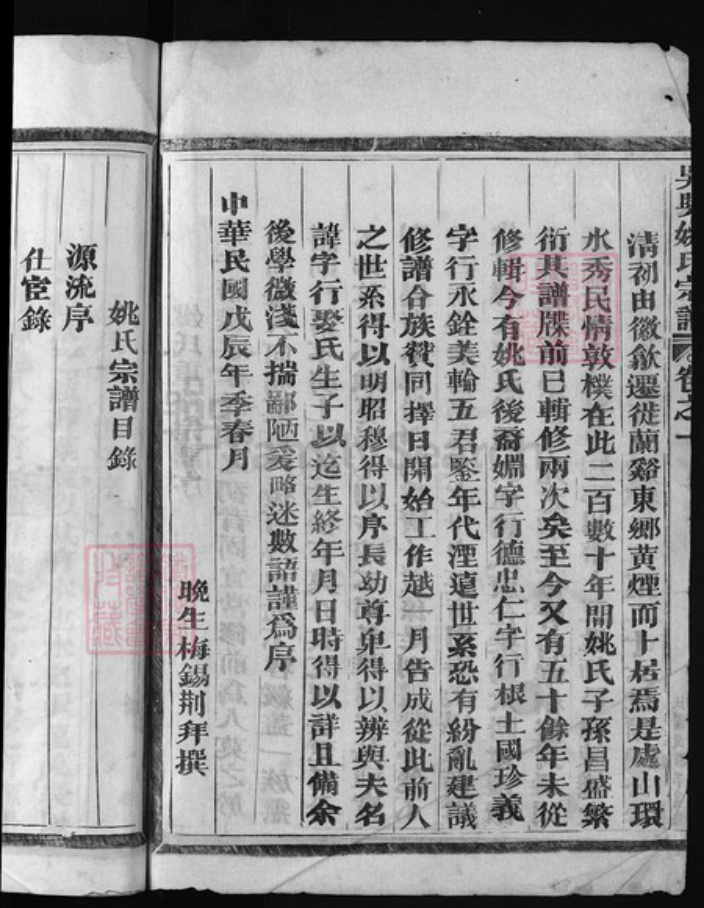 吳興姚氏宗譜 卷之一
清初由徽歙遷徙蘭谿東鄉黃煙而卜居焉是處山環
水秀民情敦樸在此二百數十年間姚氏子孫昌盛繁
衍其譜牒前已輯修兩次矣至今又有五十餘年未從
修輯今有姚氏後裔嫺字行德忠仁字行根土國珍義
字行永銓美輪五君鑒年代湮遠世系恐有紛亂建議
修譜合族贊同擇日開始工作越一月告成從此前人
之世系得以明昭穆得以序長幼尊卑得以辨與夫名
諱字行娶氏生子以迄生終年月日時得以詳且備余
後學微淺不揣鄙陋爰略述數語謹為序
中華民國戊辰年季春月
晚生梅錫荆拜撰
姚氏宗譜目錄
源流序
仕宦錄